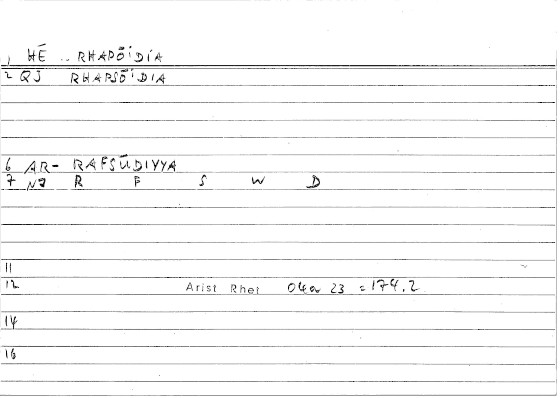 1 HĒ .. RHAPŌ'DÍA
2 QJ RHAPSŌ'DIA
6 AR- RAFSŪDIYYA
7 NJ R F S W D
11
12 Arist Rhet 04a 23 = 174.2
14
16